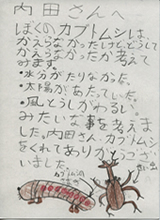 内田さんへ
ぼくのカブトムシは、
かえらなかったけど、どうして
かえらなかったか考えて
みます。
・水分がたりなかった。
・太陽があたっていた。
・風とうしがわるい。
みたいな事を考えま
した。内田さんカブトムシ
をくれてありがとうござ
いました。